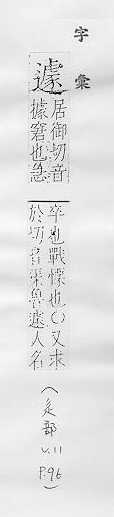 字彙
遽
居御切音
據窘也急
卒也戰慄也○又求
於切音渠魯遽人名
(辵部 V.11 P.96)